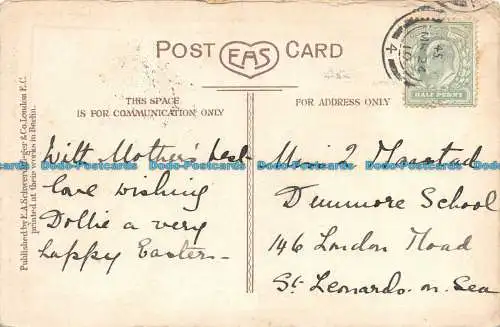 POST EAS CARD
THIS SPACE
IS FOR COMMUNICATION ONLY
FOR ADDRESS ONLY
With Mother's best
love wishing
Dollie a very
happy Easter -
Miss
Dunmore School
146 London Road
St Leonards-on-Sea
Published by E.A.Schwerdtfeger & Co. London E.C.
printed at their works in Berlin.
HALF PENNY
4
MR 24
10
Dodo-Postcards